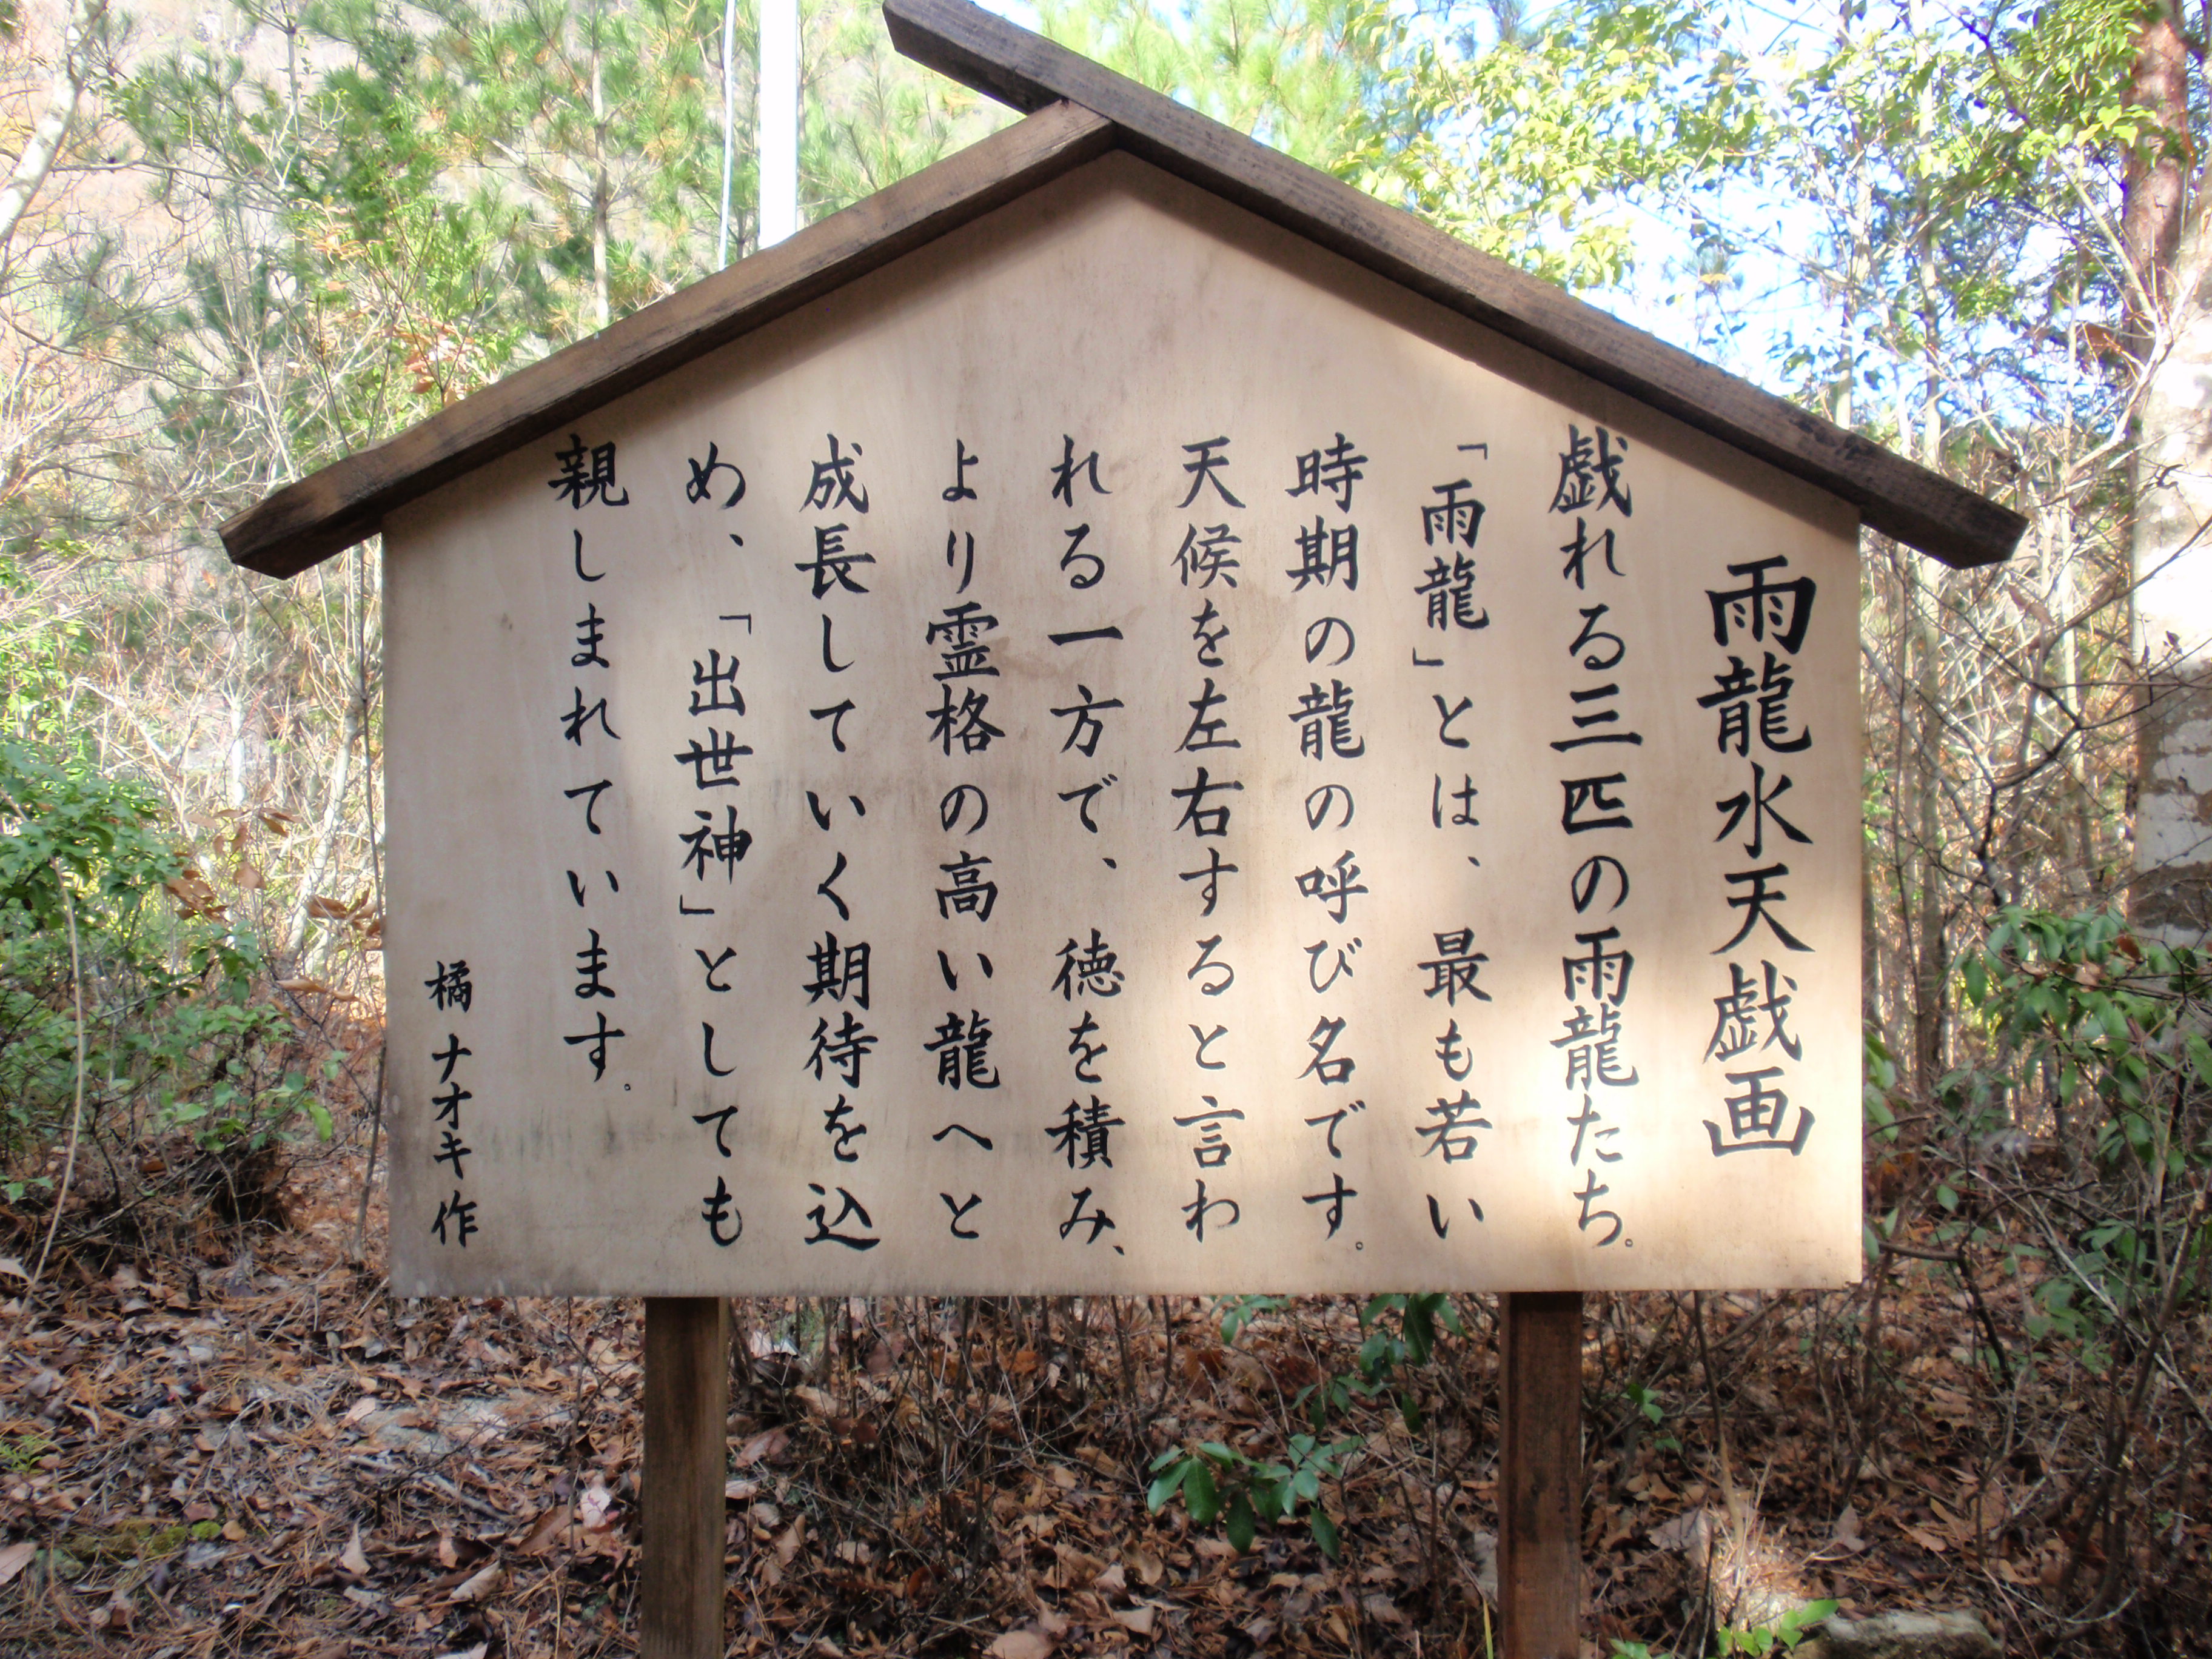 雨龍水天戯画
戯れる三匹の雨龍たち。
「雨龍」とは、最も若い
時期の龍の呼び名です。
天候を左右すると言わ
れる一方で、徳を積み、
より霊格の高い龍へと
成長していく期待を込
め、「出世神」としても
親しまれています。
橘 ナオキ 作